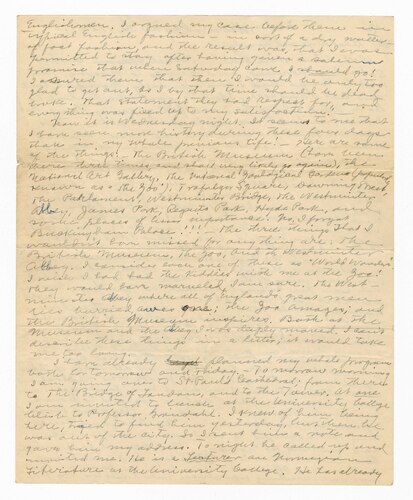 Englishmen. I argued my case before them in
typical English fashion — in sort of a dry matter
of fact fashion, and the result was, that I was
permitted to stay after having given a solemn
promise that when Saturday came, I should go!
I assured them that then I would be only too
glad to get out, as I by that time should be dead
broke. That statement they had respect for, and
everything was fixed up to my satisfaction.
Now it is Wednesday night. It seems to me that
I have seen more history during these four days
than in my whole previous life! Here are some
of the things: The British Museum (have been
there three times, and shall very likely go again), the
National Art Gallery, the National Zoological Gardens (popularly
known as "the Zoo"), Trafalgar Square, Downing Street,
The Parliament, Westminster Bridge, the Westminster
Abbey, James Park, Hyde Park, and
some places of less importance. No, I forgot
Buckingham Palace!!!! — The three things that I
wouldn't have missed for anything are: The
British Museum, the Zoo, and the Westminster
Abbey. I consider every one of them as "World Wonders".
I wish I had had the kiddies with me at the Zoo!
They would have marveled, I am sure. The West-
minster Abbey where all of England's great men are
buried awes one; the Zoo amazes; and
the British Museum inspires. Both in the
Museum and the Abbey I was deeply moved. I can't
describe these things in a letter; it would take
me too long.
I have already planned my whole program
both for tomorrow and Friday. — To-morrow morning
I am going out to St. Pauls Cathedral; from there
to The Bridge of London, and to the Tower. At one
I am invited to lunch at the University College
Club to Professor Grøndahl. I knew of him being
here, tried to find him yesterday, but then he
was out of the city. So I sent him a note and
gave him my address. To-night he called up and
invited me. He is a Lecturer on Norwegian
Literature at the University College. He has already